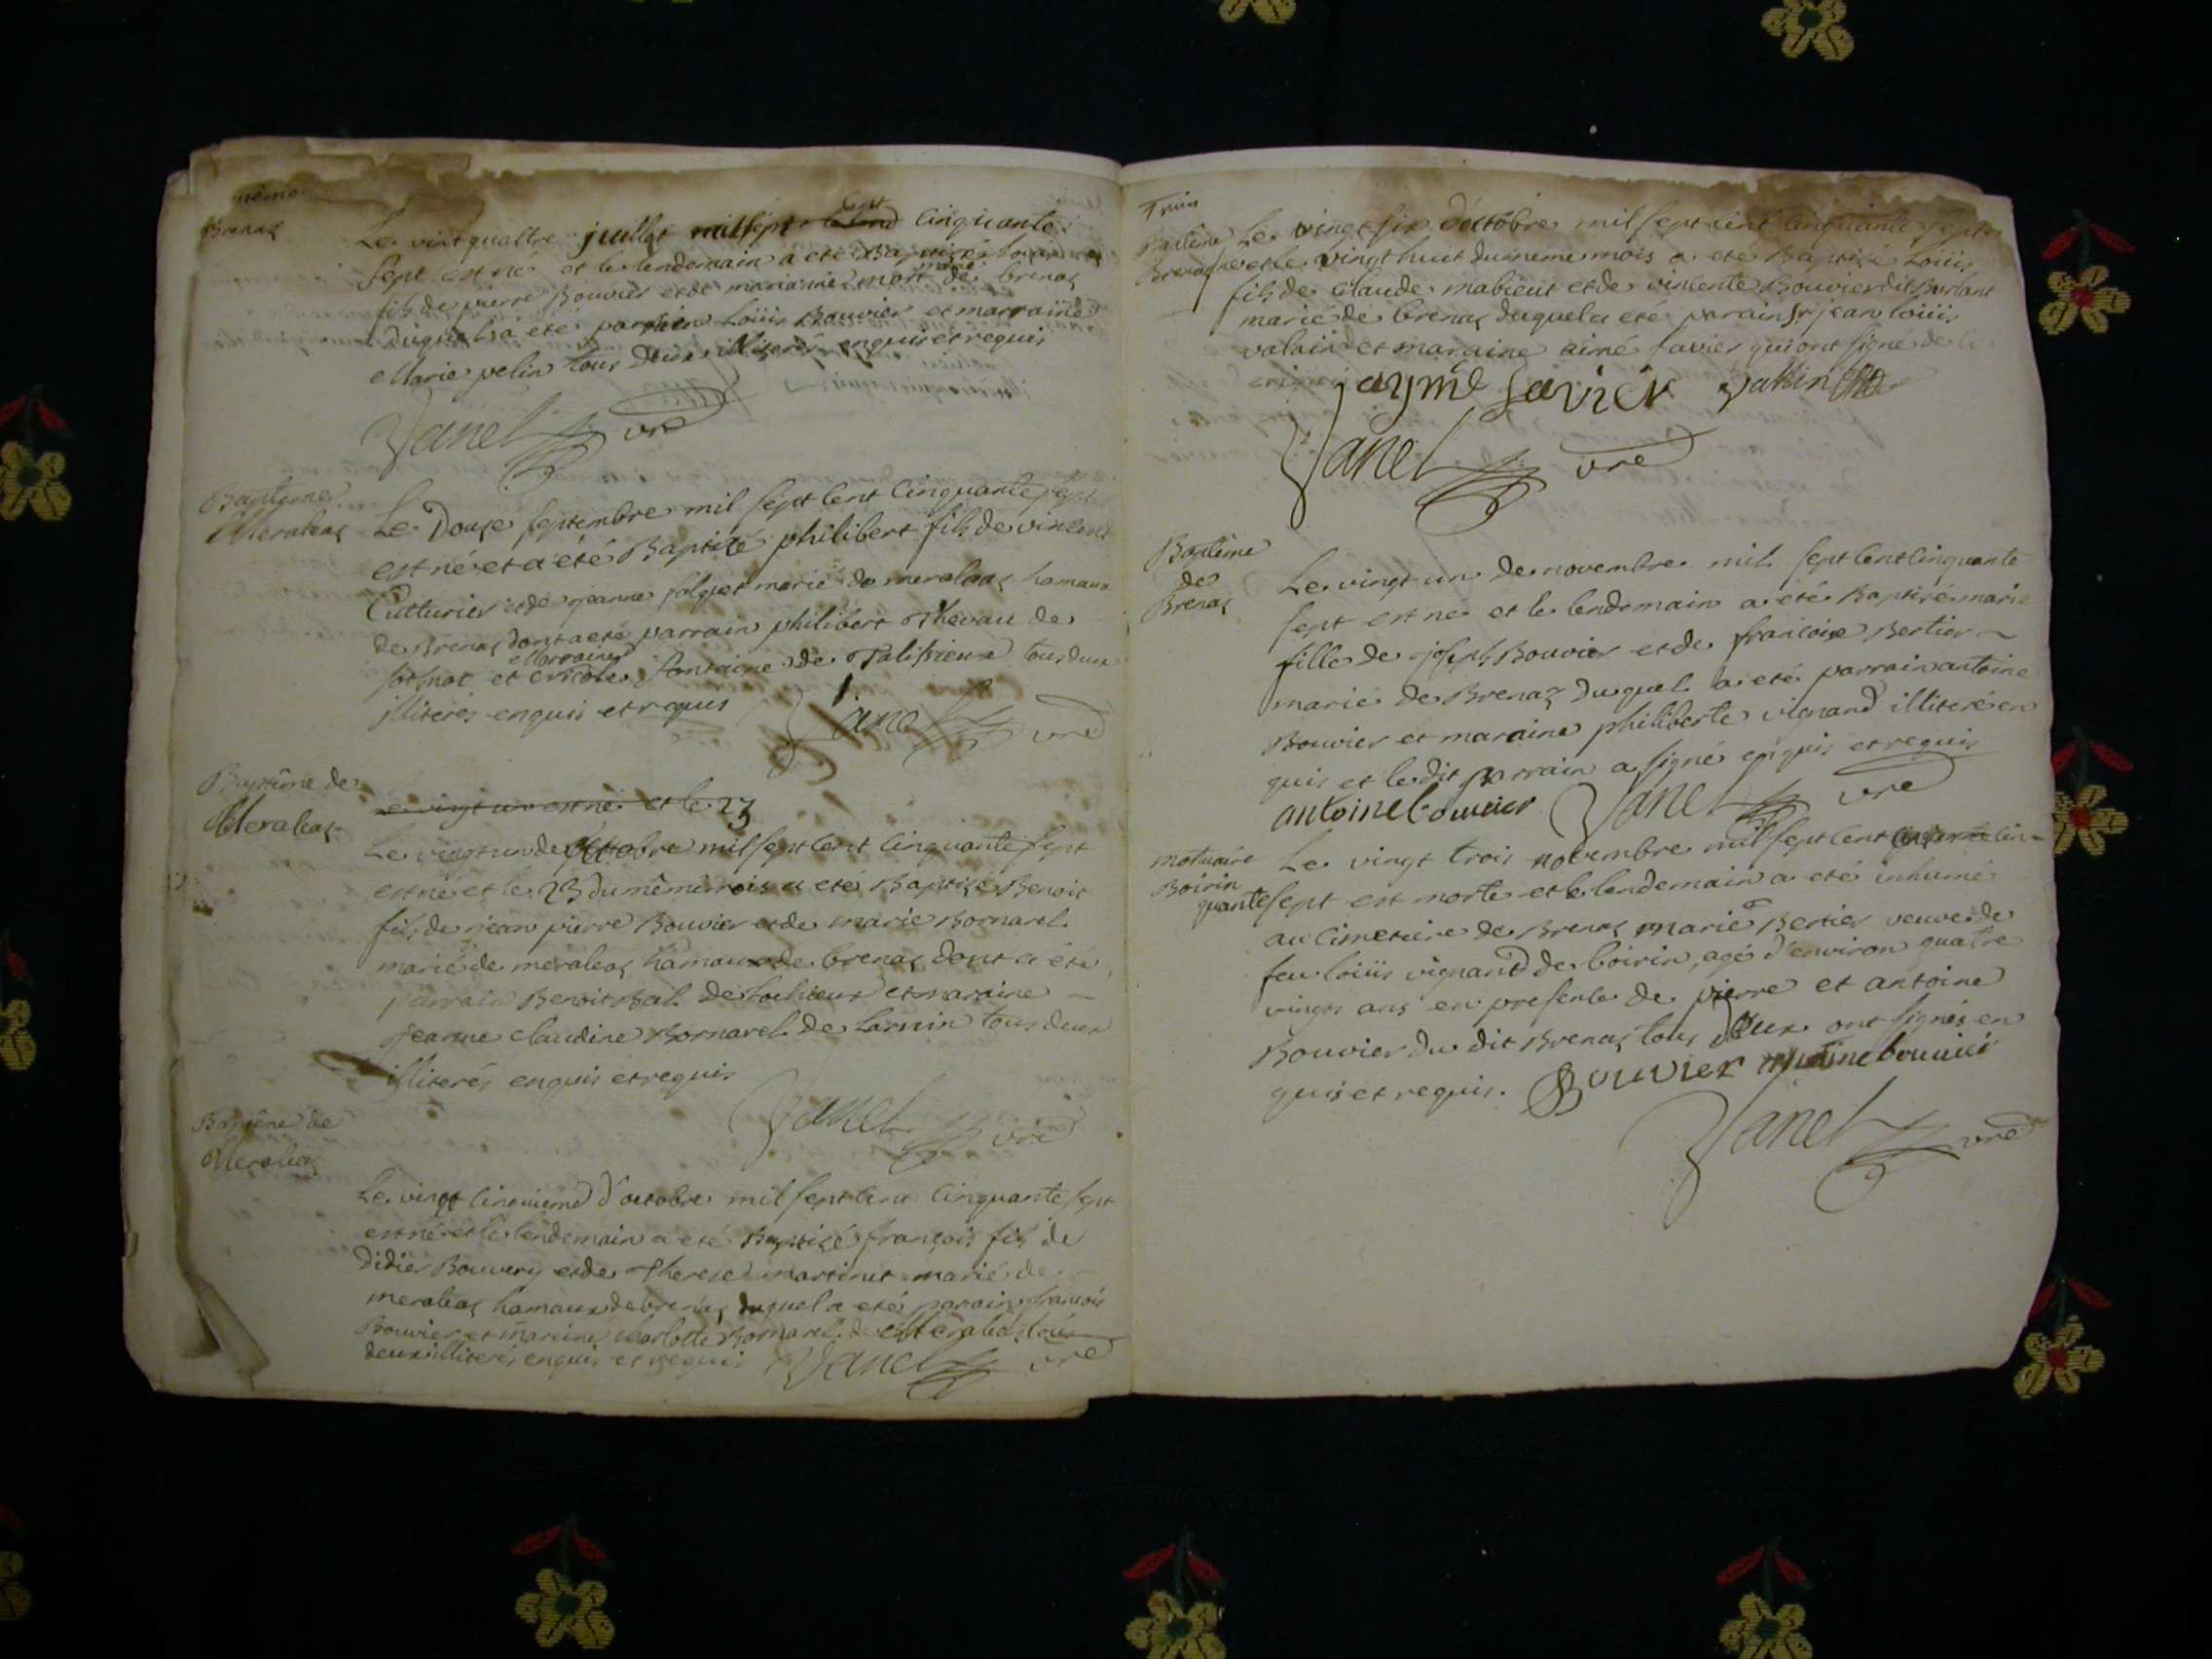 Brenaz
Le vint quattre juillet mil sept cent cinquante
sept est né et le lendemain a eté Baptizé
fils de pierre Bouvier et de marianne marié de brenaz
duquel a été parrain Loüis Bouvier et marraine
Marie pelin tous deux illiterés enquis et requis
Janel vre
Bapteme
Meraleaz
Le Douze septembre mil sept cent cinquante sept
est né et a été Baptizé philibert fils de vincent
Cutturier et de jeanne marié de meraleaz hamaux
de Brenaz dont a eté parrain philibert Thevau de
Marraine
et nicole fontaine de Talissieux tous deux
illiterés enquis et requis
Janel vre
Baptême de
Meraleaz
Le vingt un est né et le 23
Le vingt un de octobre mil sept cent cinquante sept
est né et le 23 du même mois a eté Baptizé Benoit
fils de jean pierre Bouvier et de marie Bornarel
marié de meraleaz hamaux de brenaz dont a été
parrain Benoit Bal de Lochieux et maraine
jeanne claudine Bornarel de Larnin tous deux
illiterés enquis et requis
Janel vre
Baptême de
Meraleaz
Le vingt cinquieme d'octobre mil sept cent cinquante sept
est né et le lendemain a eté Baptizé françois fils de
Didier Bouvery et de Therese martinet marié de
meraleaz hamaux de brenaz duquel a eté parain francois
Bouvier et maraine charlotte Bornarel de Meraleaz tous
deux illiterés enquis et requis Janel vre
Baptême
Le vingt six d'octobre mil sept cent cinquante sept
et le vingt huit du meme mois a eté Baptizé Loüis
fils de claude mabieux et de vincente Bouvier dit Burlant
marié de brenaz duquel a eté parain sr jean loüis
valain et maraine aimé savier qui ont signé de ce
aymé Savier vallin
Janel vre
Baptême
de
Brenaz
Le vingt un de novembre mil sept cent cinquante
sept est né et le lendemain a été Baptizé marie
fille de joseph Bouvier et de francoise Bertier
marié de Brenaz duquel a eté parrain antoine
Bouvier et maraine philiberte vignand illiteré en
quis et le dit parrain a signé enquis et requis
antoine bouvier Janel vre
mortuaire
Boirin
Le vingt trois novembre mil sept cent cin-
quante sept est morte et le lendemain a eté inhumé
au cimetiere de Brenaz marie Bertier veuve de
feu loüis vignand de boirin, agé d'environ quatre
vingts ans en presente de pierre et antoine
Bouvier du dit Brenaz tous deux ont signés en
quis et requis. Bouvier antoine bouvier
Janel vre